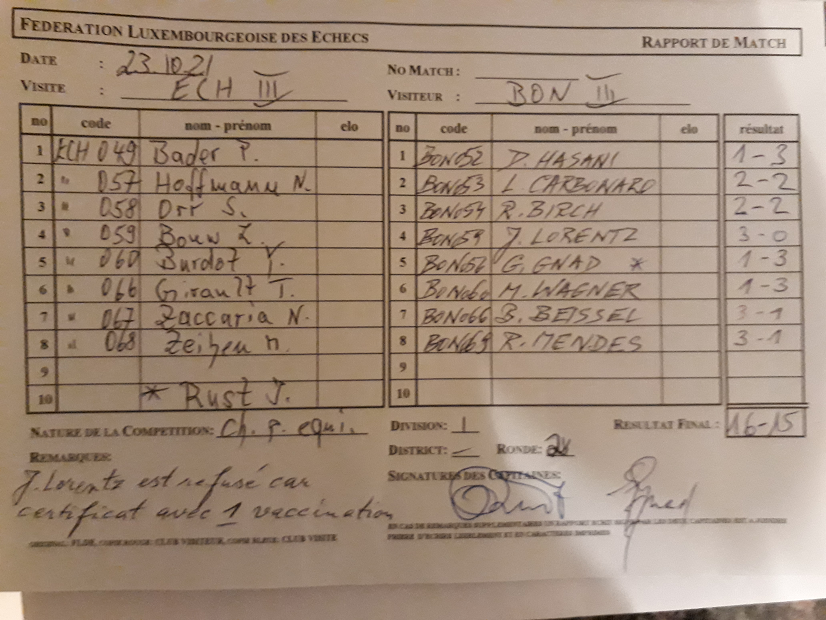 FEDERATION LUXEMBOURGEOISE DES ECHECS RAPPORT DE MATCH
DATE : 23.10.21 NO MATCH :
VISITE : ECH III VISITEUR : BON III
no code nom - prénom elo no code nom - prénom elo résultat
1 ECH 049 Bader P. 1 BON052 D. HASANI 1-3
2 " 057 Hoffmann N. 2 BON053 L. CARBONARO 2-2
3 " 058 Orr S. 3 BON054 R. BIRCH 2-2
4 " 059 Bouw Z. 4 BON059 J. LORENTZ 3-0
5 " 060 Burdot Y. 5 G. GNAD * 1-3
6 " 066 Girault T. 6 BON060 M. WAGNER 1-3
7 " 067 Zaccaria N. 7 BON066 B. BEISSEL 3-1
8 " 068 Zeihen n. 8 BON069 R. MENDES 3-1
9 9
10 * Rust J. 10
NATURE DE LA COMPETITION: Ch. p. equi. DIVISION: 1 RESULTAT FINAL : 16-15
DISTRICT: – RONDE:
REMARQUES: SIGNATURES DES CAPITAINES:
J. Lorentz est refusé car
certificat avec 1 vaccination
EN CAS DE REMARQUES SUPPLEMENTAIRES UN RAPPORT ECRIT PAR LES DEUX CAPITAINES EST A JOINDRE
ORIGINAL: FLDE, COPIE ROUGE: CLUB VISITEUR, COPIE BLEUE: CLUB VISITE PRIERE D'ECRIRE LISIBLEMENT ET EN CARACTERES IMPRIMES